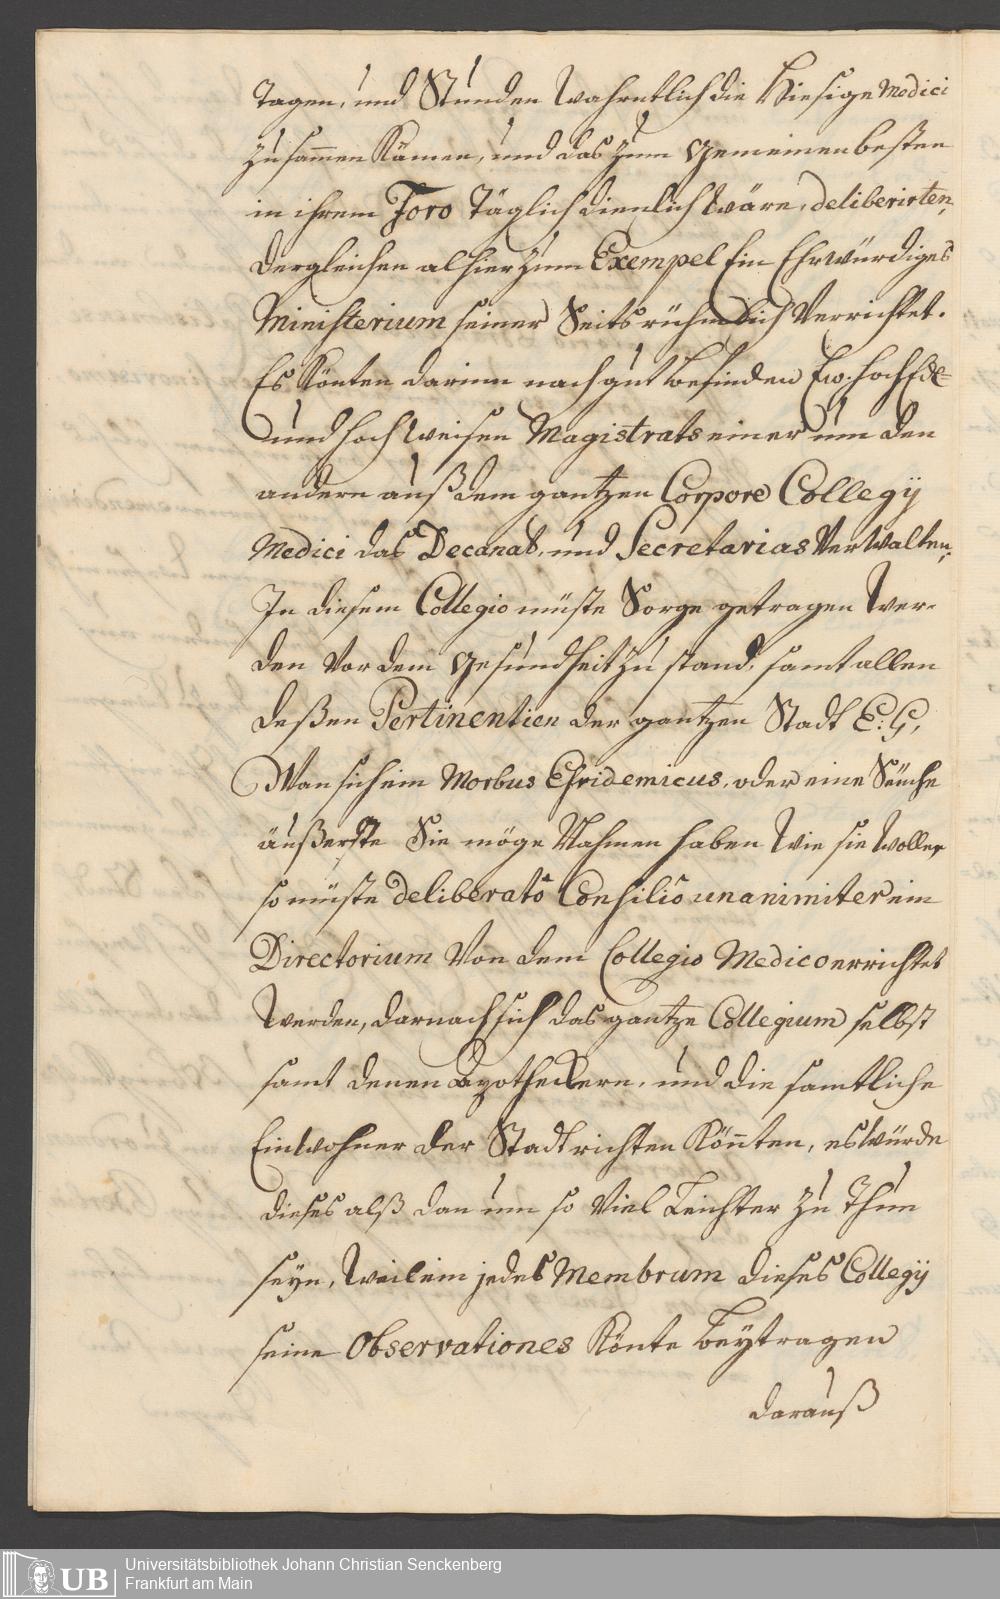 Tagen, und Stunden wochentlich die hiesige Medici
zusamen kämen, und das zum gemeinen besten
in ihrem Foro täglich dienlich wäre, deliberirten,
dergleichen alhier zum Exempel Ein Ehrwürdiges
Ministerium seiner Seits rühmlich verrichtet.
Es könten darinn nach gutbefinden Ew. HochEdl-
und hochweisen Magistrats einer um den
andern auß dem gantzen Corpore Collegij
Medici das Decanat, und Secretarias verwalten,
In diesem Collegio müste Sorge getragen wer-
den vor dem Gesundheit zustand, samt allen
deßen Pertinentien der gantzen Stadt E: G,
Wan sich ein Morbus Epidemicus, oder eine Seüche
äußerste Sie möge Nahmen haben wie sie wolle,
so müste deliberato Consilio unanimiter ein
Directorium von dem Collegio Medico errichtet
werden, darnach sich das gantze Collegium selbst
samt denen Apotheckern, und die samtliche
Einwohner der Stadt richten könnten, es würde
dieses alß dan um so viel leichter zu thun
seyn, weil ein jedes Membrum dieses Collegij
seine Observationes könte beytragen
darauß
UB
Universitätsbibliothek Johann Christian Senckenberg
Frankfurt am Main